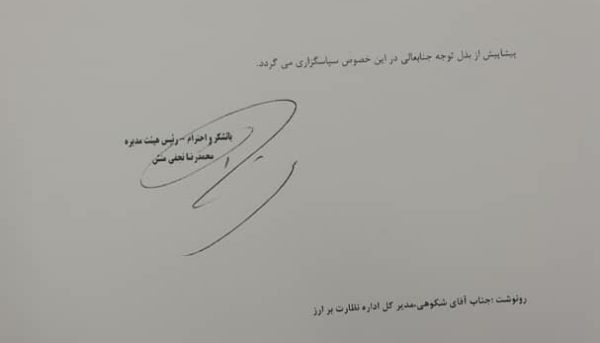 پیشاپیش از بذل توجه جنابعالی در این خصوص سپاسگزاری می گردد.
باتشکر و احترام – رئیس هیئت مدیره
محمدرضا نجفی منش
رونوشت :جناب آقای شکوهی،مدیر کل اداره نظارت بر ارز